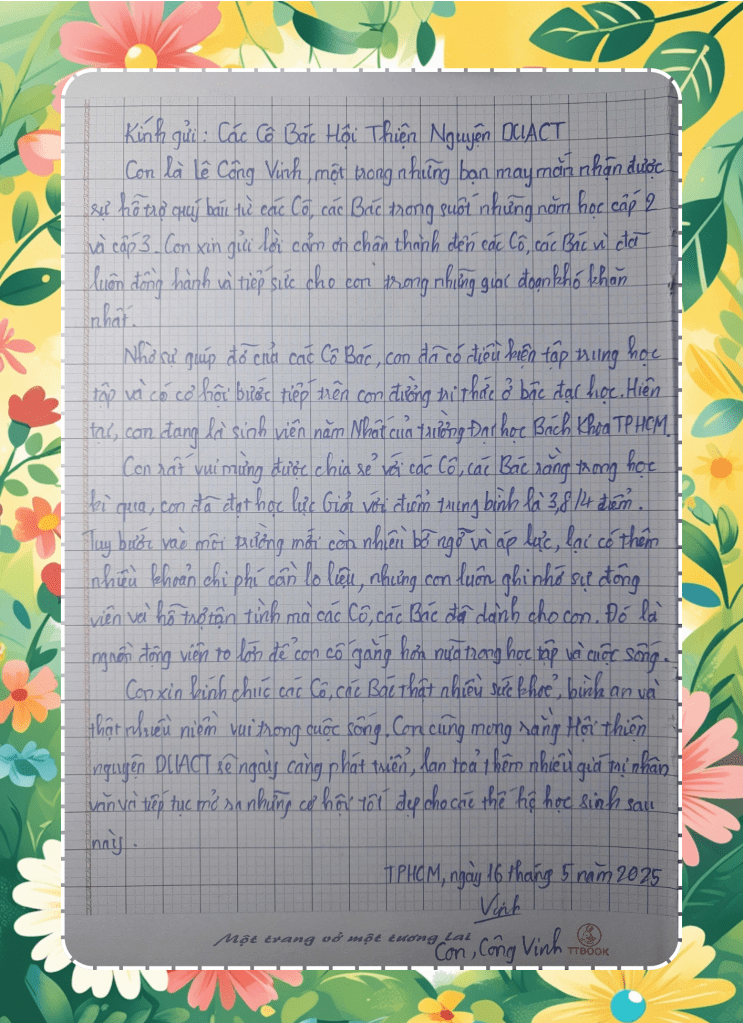 Kính gửi : Các Cô Bác Hội Thiện Nguyện DUACT
Con là Lê Công Vinh, một trong những bạn may mắn nhận được
sự hỗ trợ quý báu từ các Cô, các Bác trong suốt những năm học cấp 2
và cấp 3. Con xin gửi lời cảm ơn chân thành đến các Cô, các Bác vì đã
luôn đồng hành và tiếp sức cho con trong những giai đoạn khó khăn
nhất.
Nhờ sự giúp đỡ của các Cô Bác, con đã có điều kiện tập trung học
tập và có cơ hội bước tiếp trên con đường tri thức ở bậc đại học. Hiện
tại, con đang là sinh viên năm Nhất của trường Đại học Bách Khoa TPHCM.
Con rất vui mừng được chia sẻ với các Cô, các Bác rằng trong học
kì qua, con đã đạt học lực Giỏi với điểm trung bình là 3,8/4 điểm.
Tuy bước vào môi trường mới còn nhiều bỡ ngỡ và áp lực, lại có thêm
nhiều khoản chi phí cần lo liệu, nhưng con luôn ghi nhớ sự động
viên và hỗ trợ tận tình mà các Cô, các Bác đã dành cho con. Đó là
nguồn động viên to lớn để con cố gắng hơn nữa trong học tập và cuộc sống.
Con xin kính chúc các Cô, các Bác thật nhiều sức khoẻ, bình an và
thật nhiều niềm vui trong cuộc sống. Con cũng mong rằng Hội thiện
nguyện DUACT sẽ ngày càng phát triển, lan toả thêm nhiều giá trị nhân
văn và tiếp tục mở ra những cơ hội tốt đẹp cho các thế hệ học sinh sau
này.
TPHCM, ngày 16 tháng 5 năm 2025
Vinh
Con, Công Vinh
Một trang vở một tương lai
TTBOOK